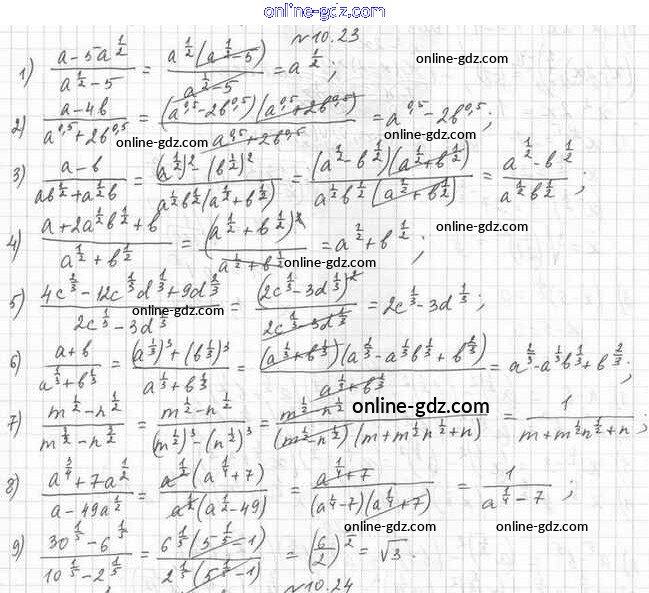 online-gdz.com
№10.23
1) \frac{a-5a^{\frac{1}{2}}}{a^{\frac{1}{2}}-5} = \frac{a^{\frac{1}{2}}(a^{\frac{1}{2}}-5)}{a^{\frac{1}{2}}-5} = a^{\frac{1}{2}};
online-gdz.com
online-gdz.com
2) \frac{a-4b}{a^{0,5}+2b^{0,5}} = \frac{(a^{0,5}-2b^{0,5})(a^{0,5}+2b^{0,5})}{a^{0,5}+2b^{0,5}} = a^{0,5}-2b^{0,5};
online-gdz.com
online-gdz.com
3) \frac{a-b}{ab^{\frac{1}{2}}+a^{\frac{1}{2}}b} = \frac{(a^{\frac{1}{2}})^2-(b^{\frac{1}{2}})^2}{a^{\frac{1}{2}}b^{\frac{1}{2}}(a^{\frac{1}{2}}+b^{\frac{1}{2}})} = \frac{(a^{\frac{1}{2}}-b^{\frac{1}{2}})(a^{\frac{1}{2}}+b^{\frac{1}{2}})}{a^{\frac{1}{2}}b^{\frac{1}{2}}(a^{\frac{1}{2}}+b^{\frac{1}{2}})} = \frac{a^{\frac{1}{2}}-b^{\frac{1}{2}}}{a^{\frac{1}{2}}b^{\frac{1}{2}}};
online-gdz.com
4) \frac{a+2a^{\frac{1}{2}}b^{\frac{1}{2}}+b}{a^{\frac{1}{2}}+b^{\frac{1}{2}}} = \frac{(a^{\frac{1}{2}}+b^{\frac{1}{2}})^2}{a^{\frac{1}{2}}+b^{\frac{1}{2}}} = a^{\frac{1}{2}}+b^{\frac{1}{2}};
online-gdz.com
5) \frac{4c^{\frac{2}{3}}-12c^{\frac{1}{3}}d^{\frac{1}{3}}+9d^{\frac{2}{3}}}{2c^{\frac{1}{3}}-3d^{\frac{1}{3}}} = \frac{(2c^{\frac{1}{3}}-3d^{\frac{1}{3}})^2}{2c^{\frac{1}{3}}-3d^{\frac{1}{3}}} = 2c^{\frac{1}{3}}-3d^{\frac{1}{3}};
online-gdz.com
6) \frac{a+b}{a^{\frac{1}{3}}+b^{\frac{1}{3}}} = \frac{(a^{\frac{1}{3}})^3+(b^{\frac{1}{3}})^3}{a^{\frac{1}{3}}+b^{\frac{1}{3}}} = \frac{(a^{\frac{1}{3}}+b^{\frac{1}{3}})(a^{\frac{2}{3}}-a^{\frac{1}{3}}b^{\frac{1}{3}}+b^{\frac{2}{3}})}{a^{\frac{1}{3}}+b^{\frac{1}{3}}} = a^{\frac{2}{3}}-a^{\frac{1}{3}}b^{\frac{1}{3}}+b^{\frac{2}{3}};
online-gdz.com
7) \frac{m^{\frac{1}{2}}-n^{\frac{1}{2}}}{m^{\frac{3}{2}}-n^{\frac{3}{2}}} = \frac{m^{\frac{1}{2}}-n^{\frac{1}{2}}}{(m^{\frac{1}{2}})^3-(n^{\frac{1}{2}})^3} = \frac{m^{\frac{1}{2}}-n^{\frac{1}{2}}}{(m^{\frac{1}{2}}-n^{\frac{1}{2}})(m+m^{\frac{1}{2}}n^{\frac{1}{2}}+n)} = \frac{1}{m+m^{\frac{1}{2}}n^{\frac{1}{2}}+n};
8) \frac{a^{\frac{3}{4}}+7a^{\frac{1}{2}}}{a-49a^{\frac{1}{2}}} = \frac{a^{\frac{1}{2}}(a^{\frac{1}{4}}+7)}{a^{\frac{1}{2}}(a^{\frac{1}{2}}-49)} = \frac{a^{\frac{1}{4}}+7}{(a^{\frac{1}{4}}-7)(a^{\frac{1}{4}}+7)} = \frac{1}{a^{\frac{1}{4}}-7};
online-gdz.com
online-gdz.com
9) \frac{30^{\frac{1}{5}}-6^{\frac{1}{5}}}{10^{\frac{1}{5}}-2^{\frac{1}{5}}} = \frac{6^{\frac{1}{5}}(5^{\frac{1}{5}}-1)}{2^{\frac{1}{5}}(5^{\frac{1}{5}}-1)} = (\frac{6}{2})^{\frac{1}{2}} = \sqrt{3}.
online-gdz.com
online-gdz.com
№10.24